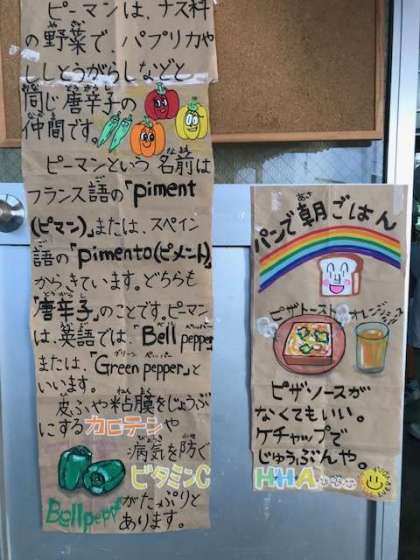 ピーマンは、ナス科
の野菜で、パプリカや
ししとうがらしなどと
同じ唐辛子の
仲間です。
ピーマンという名前は
フランス語の「piment
(ピマン)」または、スペイン
語の「pimento(ピメント)」
からきています。どちらも
「唐辛子」のことです。ピーマン
は、英語では、「Bell pepper」
または、「Green pepper」と
いいます。
皮ふや粘膜をじょうぶ
にするカロテンや
病気を防ぐ
ビタミンC
がたっぷりと
あります。
Bell pepper
パンで朝ごはん
ピザトースト
オレンジジュース
ピザソースが
なくてもいい。
ケチャップで
じゅうぶんや。
HHA